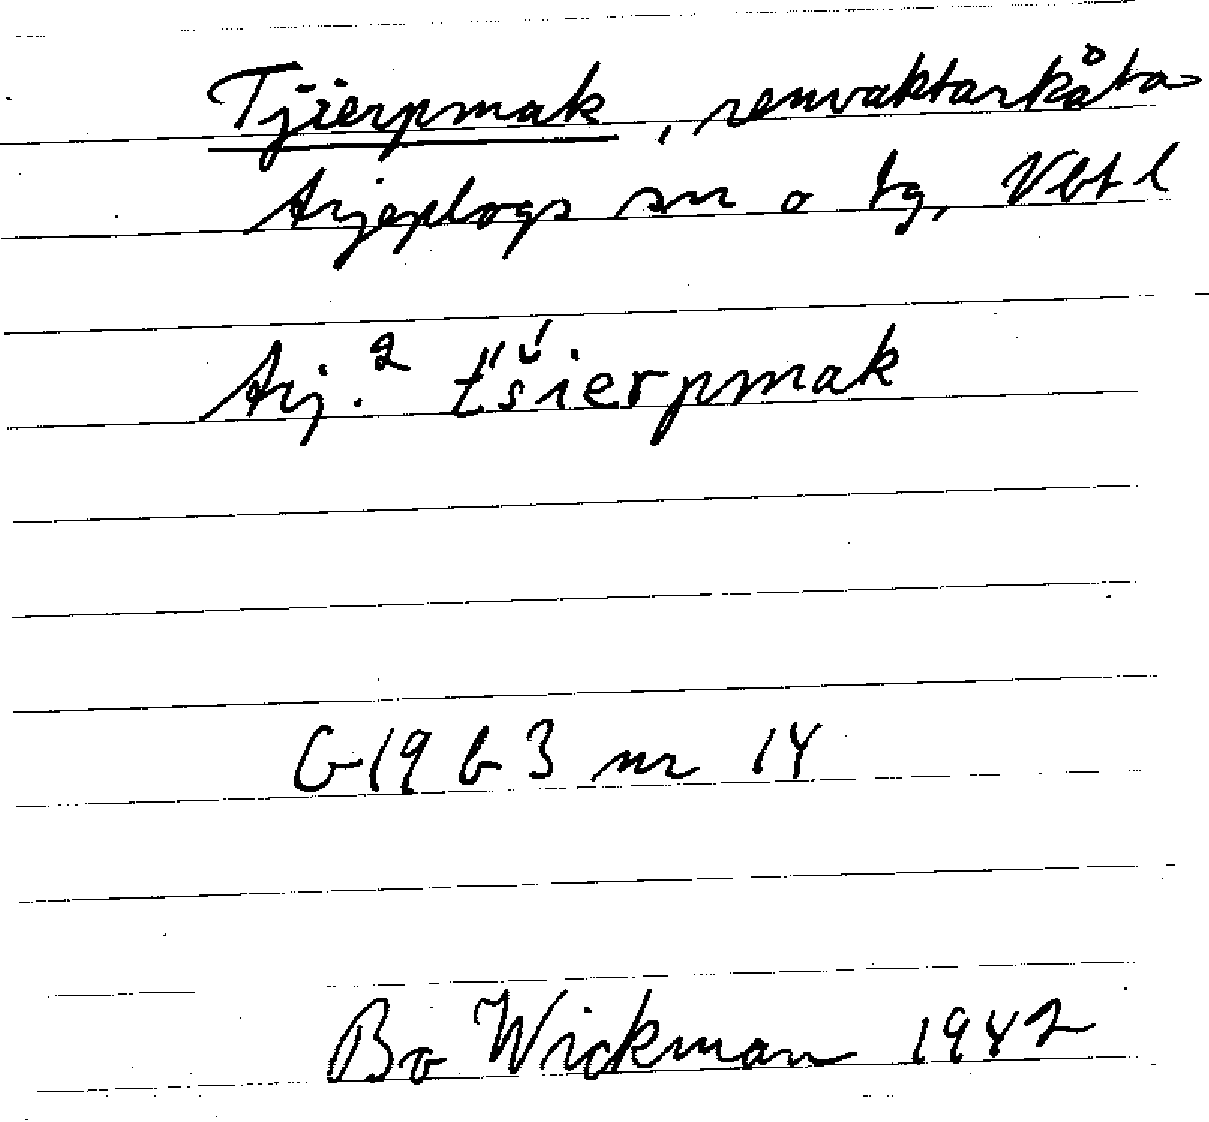 Tjierpmak, renvaktarkåta
Arjeplogs sn o tg, Vbt l
Arj.² t́š́ierpmak
G 19 b 3 nr 14
Bo Wickman 1942